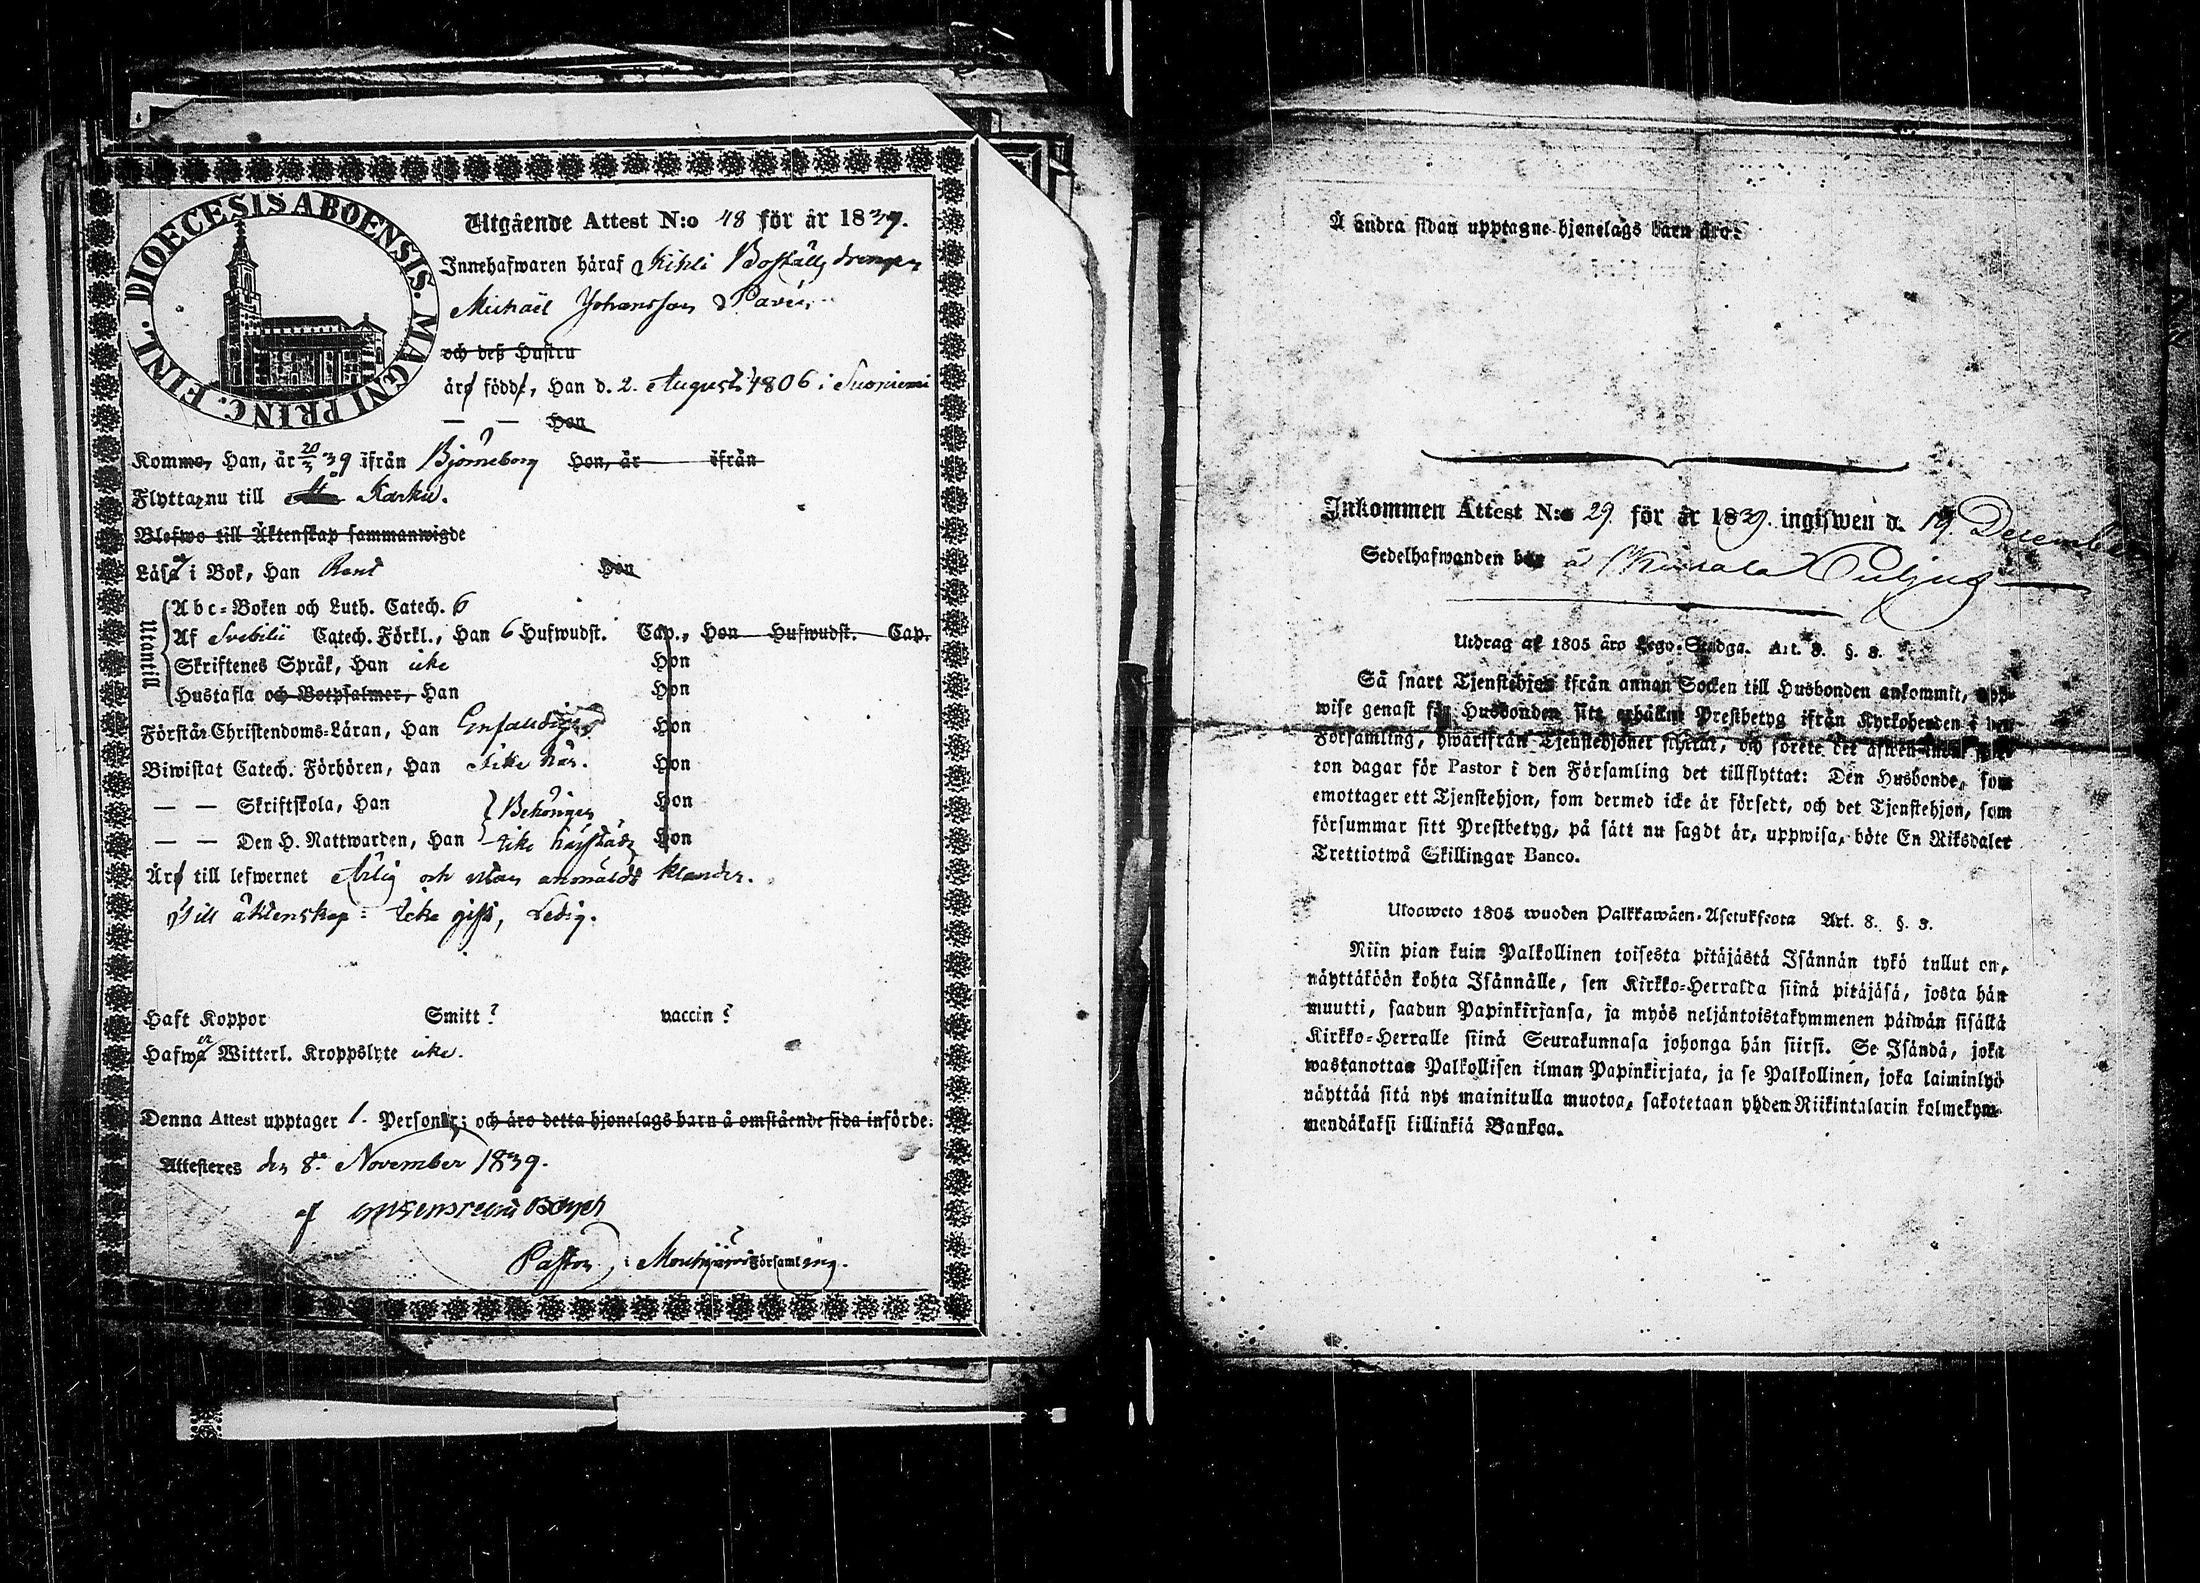 DIOECESIS ABOENSIS. MAGNI PRINC. FINL.
Utgående Attest N:o 48 för år 1839.
Innehafwaren häraf Kikli Boställs drengen
Michaël Johansson
och deß Hustru
äro födde, Han d. 2. Augusti 1806 i Suoniemi
— — Hon
Komme, Han, år 20/3 39 ifrån Björneborg Hon, år ifrån
Flytta nu till Karku.
Blefwo till Äktenskap sammanwigde
Läsa i Bok, Han Rent Hon
Utantill
Abc-Boken och Luth. Catech. 6
Af Svebilii Catech. Förkl., Han 6 Hufwudst. Cap., Hon Hufwudst. Cap.
Skriftenes Språk, Han icke Hon
Hustafla och Botpsalmer, Han Hon
Förstår Christendoms-Läran, Han Enfaldigt Hon
Biwistat Catech. Förhören, Han icke här. Hon
— — Skriftskola, Han Behörigen Hon
— — Den H. Nattwarden, Han icke härstädes Hon
Äro till lefwernet Ärlig och utan anmäldt klander.
Till äktenskap: Icke gift, Ledig.
Haft Koppor Smitt? vaccin?
Hafwa Witterl. Kroppslyte icke.
Denna Attest upptager 1. Personer; och äro detta hjonelags barn å omstående sida införde.
Attesteres den 8de November 1839.
af
Pastor i Mouhijärvi Församling.
Å andra sidan upptagne hjonelags barn äro:
Inkommen Attest N:o 29. för år 1839. ingifwen d. 19. December
Sedelhafwanden bor å
Utdrag af 1805 års Lego-Stadga. Art. 8. §. 3.
Så snart Tjenstehjon ifrån annan Socken till Husbonden ankommit, upp-
wise genast för Husbonden sitt erhållne Prestbetyg ifrån Kyrkoherden i den
Församling, hwarifrån Tjenstehjonet flyttat, och förete det äfwen inom fjor-
ton dagar för Pastor i den Församling det tillflyttat: Den Husbonde, som
emottager ett Tjenstehjon, som dermed icke är försedt, och det Tjenstehjon, som
försummar sitt Prestbetyg, på sätt nu sagdt är, uppwisa, böte En Riksdaler
Trettiotwå Skillingar Banco.
Ulosweto 1805 wuoden Palkkawäen-Asetuksesta Art. 8. §. 3.
Niin pian kuin Palkollinen toisesta pitäjästä Isännän tykö tullut on,
näyttäköön kohta Isännälle, sen Kirkko-Herralta siinä pitäjäsä, josta hän
muutti, saadun Papinkirjansa, ja myös neljäntoistakymmenen päiwän sisällä
Kirkko-Herralle siinä Seurakunnasa johonga hän siirsi. Se Isändä, joka
wastanottaa Palkollisen ilman Papinkirjata, ja se Palkollinen, joka laiminlyö
näyttää sitä nyt mainitulla muotoa, sakotetaan yhden Riikintalarin kolmekym-
mendäkaksi killinkiä Bankoa.